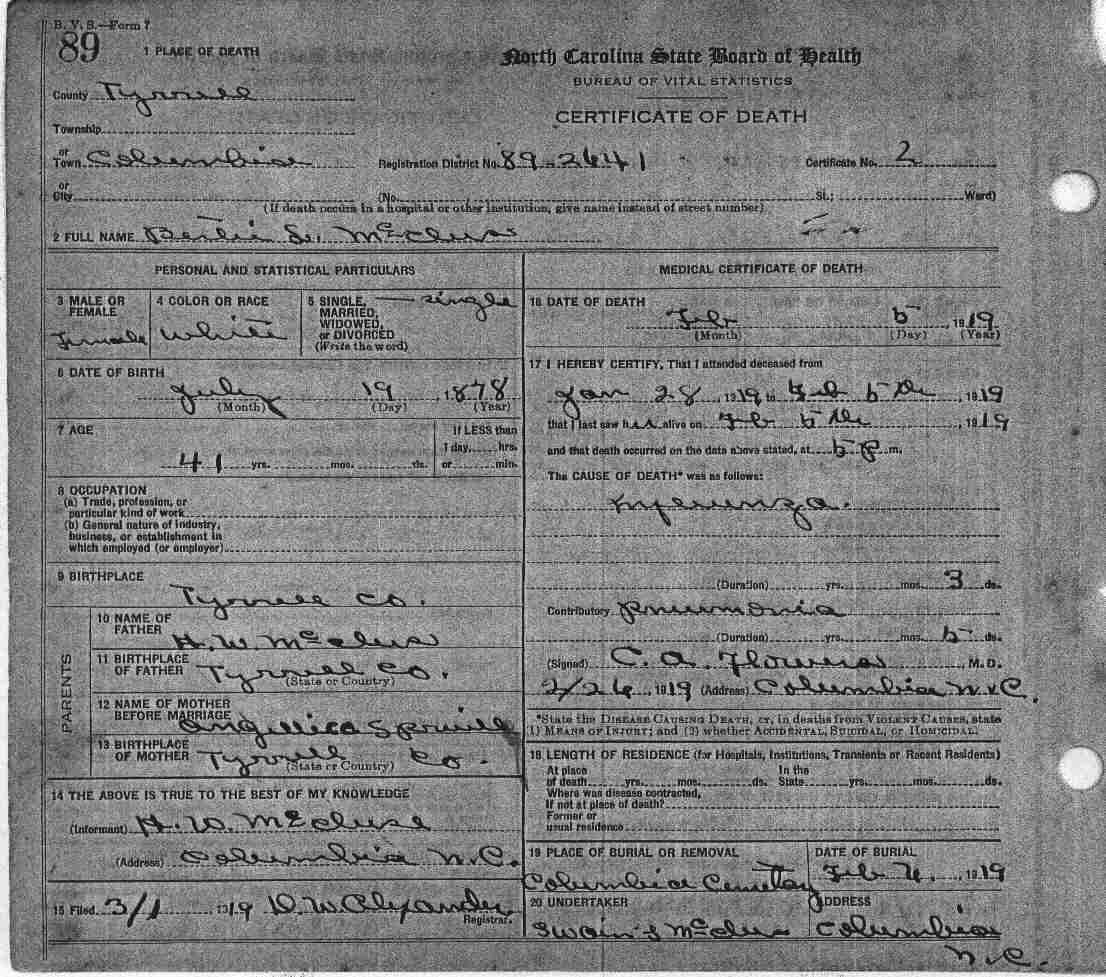 B. V. S.—Form 7
89
1 PLACE OF DEATH
North Carolina State Board of Health
BUREAU OF VITAL STATISTICS
CERTIFICATE OF DEATH
County Tyrrell
Township
or Town Columbia Registration District No. 89-2641 Certificate No. 2
or City (No. St.; Ward)
(If death occurs in a hospital or other institution, give name instead of street number)
2 FULL NAME
PERSONAL AND STATISTICAL PARTICULARS
3 MALE OR FEMALE Female
4 COLOR OR RACE White
5 SINGLE, MARRIED, WIDOWED, or DIVORCED (Write the word) single
6 DATE OF BIRTH
July 19, 1878
(Month) (Day) (Year)
7 AGE
If LESS than
1 day, hrs.
41 yrs. mos. ds. or min.
8 OCCUPATION
(a) Trade, profession, or
particular kind of work
(b) General nature of industry,
business, or establishment in
which employed (or employer)
9 BIRTHPLACE
Tyrrell Co.
PARENTS
10 NAME OF FATHER H. W. McClus
11 BIRTHPLACE OF FATHER Tyrrell Co.
(State or Country)
12 NAME OF MOTHER BEFORE MARRIAGE Angillica Spruill
13 BIRTHPLACE OF MOTHER Tyrrell Co.
(State or Country)
14 THE ABOVE IS TRUE TO THE BEST OF MY KNOWLEDGE
(Informant) H. W. McCluse
(Address) Columbia N.C.
15 Filed 3/1 1919 D. W. Alyander
Registrar.
MEDICAL CERTIFICATE OF DEATH
16 DATE OF DEATH
Feb 5, 1919
(Month) (Day) (Year)
17 I HEREBY CERTIFY, That I attended deceased from
Jan 28, 1919 to Feb 5th, 1919
that I last saw her alive on Feb 5th, 1919
and that death occurred on the date above stated, at 5 P m.
The CAUSE OF DEATH* was as follows:
Influenza.
(Duration) yrs. mos. 3 ds.
Contributory Pneumonia
(Duration) yrs. mos. 5 ds.
(Signed) C. A. Flowers, M.D.
2/26, 1919 (Address) Columbia N.C.
*State the DISEASE CAUSING DEATH, or, in deaths from VIOLENT CAUSES, state
1) MEANS OF INJURY; and (2) whether ACCIDENTAL, SUICIDAL, or HOMICIDAL.
18 LENGTH OF RESIDENCE (for Hospitals, Institutions, Transients or Recent Residents)
At place of death yrs. mos. ds. In the State yrs. mos. ds.
Where was disease contracted,
If not at place of death?
Former or
usual residence
19 PLACE OF BURIAL OR REMOVAL DATE OF BURIAL
Columbia Cemetay Feb 1919
20 UNDERTAKER ADDRESS
Swain & McClus Columbia
N.C.